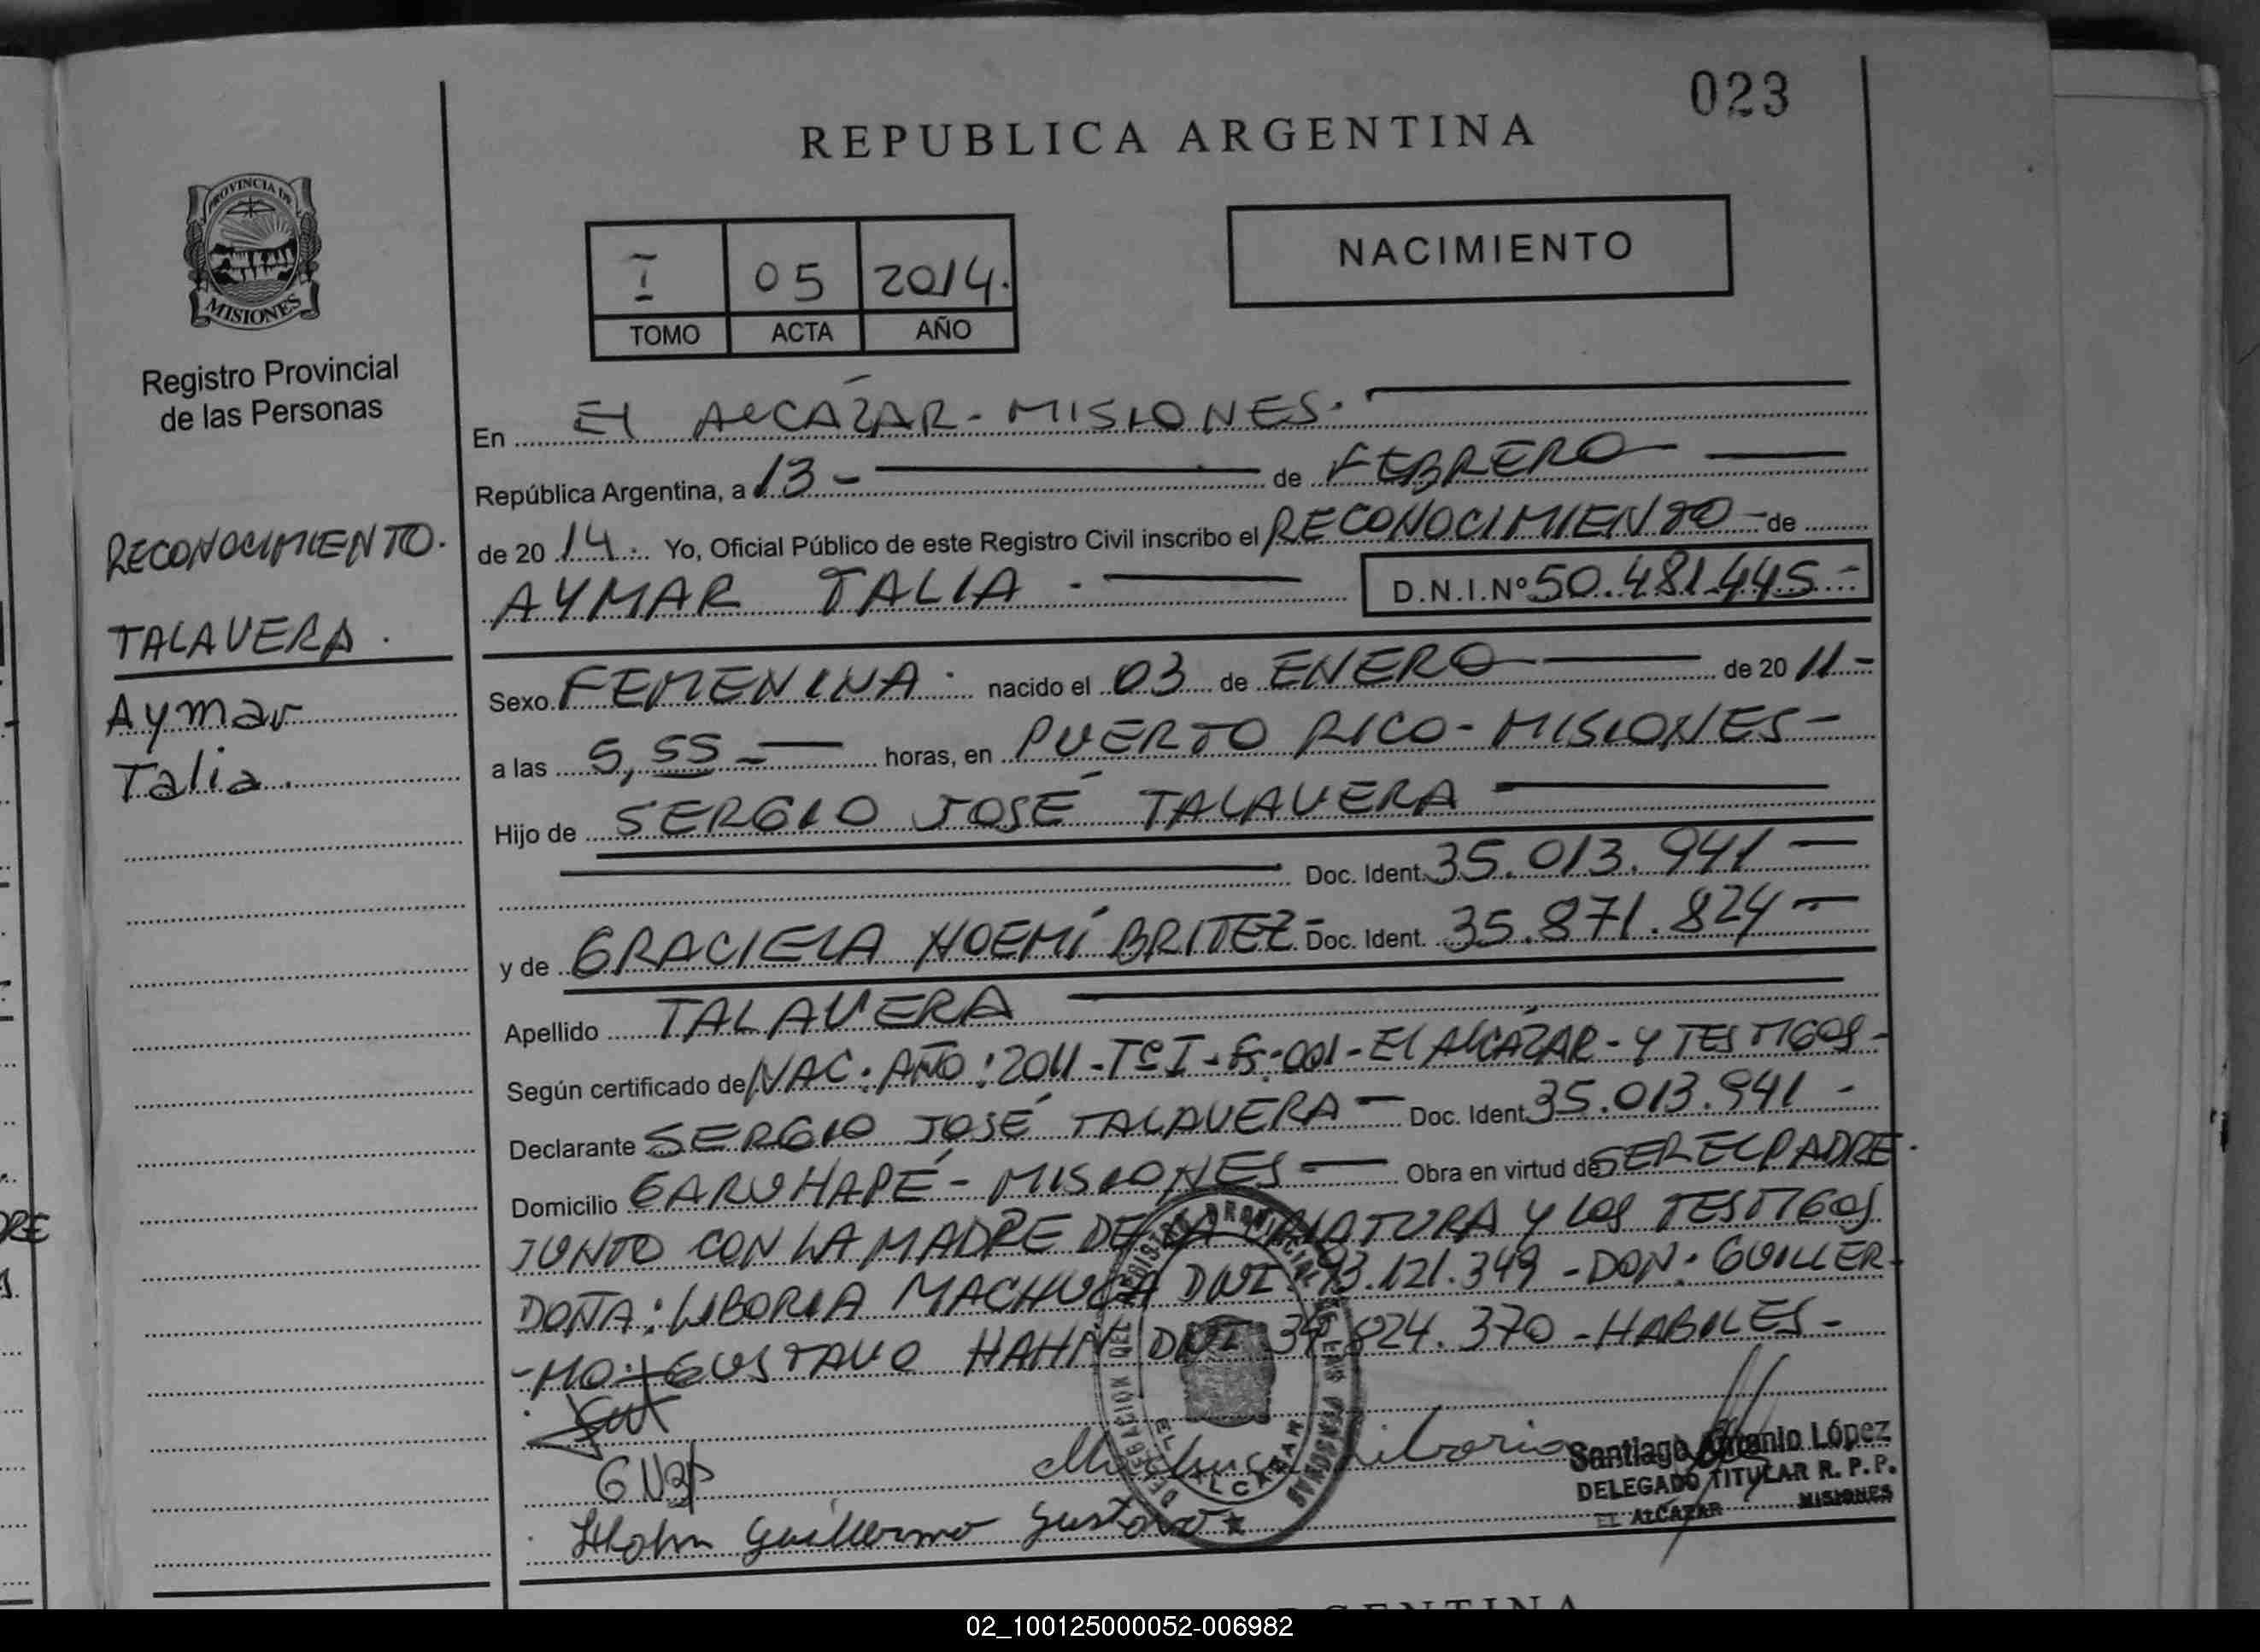 023
REPUBLICA ARGENTINA
PROVINCIA DE
MISIONES
Registro Provincial
de las Personas
I 05 2014.
TOMO ACTA AÑO
NACIMIENTO
RECONOCIMIENTO.
TALAVERA.
Aymar
Talia.
En El ALCÁZAR - MISIONES.
República Argentina, a 13 - de FEBRERO
de 20 14. Yo, Oficial Público de este Registro Civil inscribo el RECONOCIMIENTO - de
AYMAR TALIA. D.N.I.Nº 50.481.445-
Sexo FEMENINA. nacido el 03 de ENERO de 20 11-
a las 5,55 - horas, en PUERTO RICO - MISIONES -
Hijo de SERGIO JOSÉ TALAVERA
Doc. Ident. 35.013.941 -
y de GRACIELA NOEMÍ BRITEZ - Doc. Ident. 35.871.824 -
Apellido TALAVERA
Según certificado de NAC. AÑO: 2011 - Tº I - Fº-001 - El ALCÁZAR - Y TESTIGOS -
Declarante SERGIO JOSÉ TALAVERA - Doc. Ident. 35.013.941 -
Domicilio GARUHAPÉ - MISIONES - Obra en virtud de SER EL PADRE.
JUNTO CON LA MADRE DE LA CRIATURA Y LOS TESTIGOS
DOÑA: LIBORIA MACHUCA DNI 93.121.349 - DON: GUILLER-
-MO GUSTAVO HAHN DNI 824.370 - HABILES -
DELEGACIÓN DEL REGISTRO PROVINCIAL DE LAS PERSONAS
EL ALCAZAR
Machuca Liboria
Santiago Antonio López
DELEGADO TITULAR R. P. P.
EL ALCAZAR MISIONES
Hahn Guillermo Gustavo
02_100125000052-006982